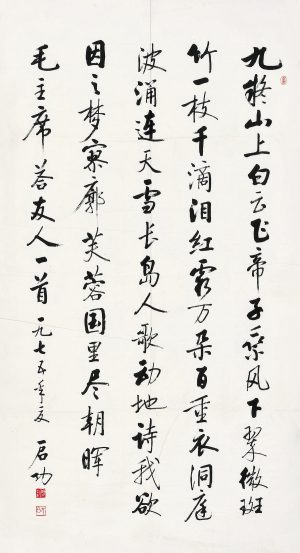 九疑山上白云飞帝子乘风下翠微斑
竹一枝千滴泪红霞万朵百重衣洞庭
波涌连天雪长岛人歌动地诗我欲
因之梦寥廓芙蓉国里尽朝晖
毛主席荅友人一首 一九七五年夏 启功